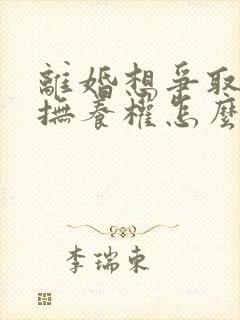 離婚想爭取
撫養權怎麼
李瑞東